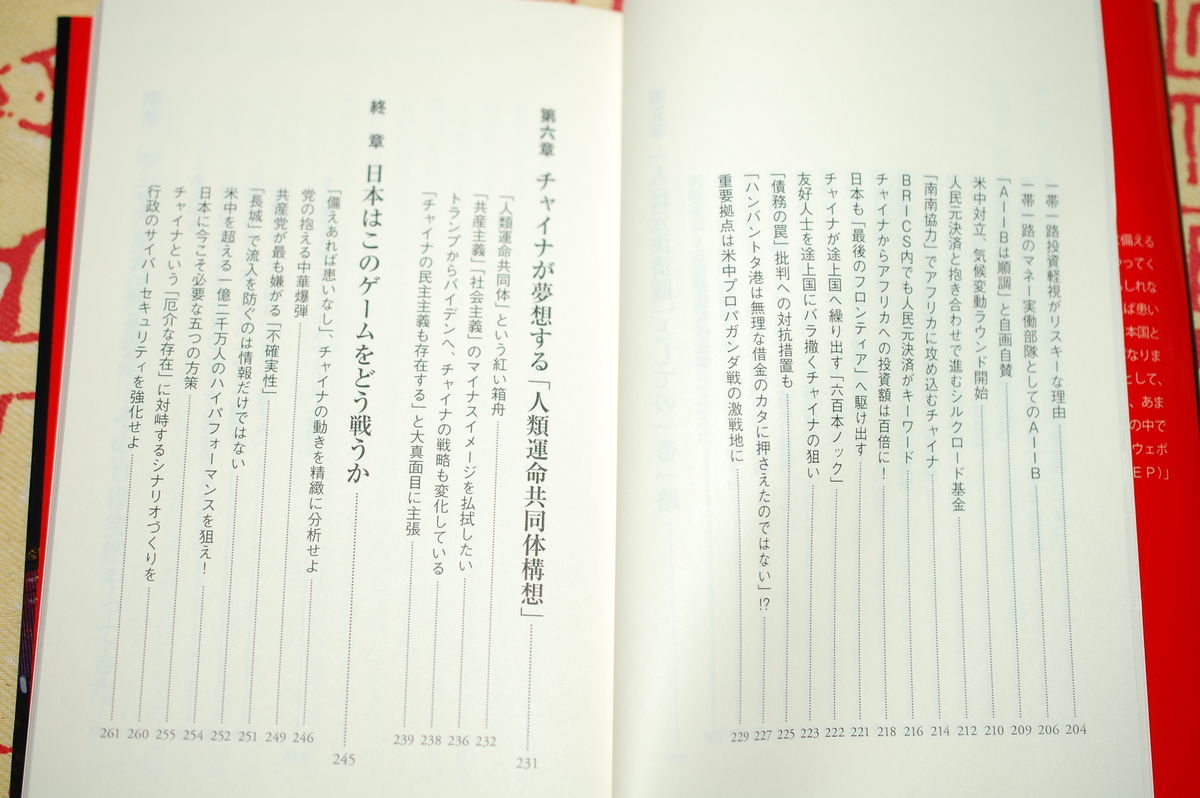 一帯一路投資軽視がリスキーな理由 204
一帯一路のマネー実働部隊としてのAIIB 206
「AIIBは順調」と自画自賛 209
米中対立、気候変動ラウンド開始 210
人民元決済と抱き合わせで進むシルクロード基金 212
「南南協力」でアフリカに攻め込むチャイナ 214
BRICS内でも人民元決済がキーワード 216
チャイナからアフリカへの投資額は百倍に！ 218
日本も「最後のフロンティア」へ駆け出す 221
チャイナが途上国へ繰り出す「六百本ノック」 222
友好人士を途上国にバラ撒くチャイナの狙い 223
「債務の罠」批判への対抗措置も 225
「ハンバントタ港は無理な借金のカタに押さえたのではない」!? 227
重要拠点は米中プロパガンダ戦の激戦地に 229
第六章 チャイナが夢想する「人類運命共同体構想」 231
「人類運命共同体」という紅い箱舟 232
「共産主義」「社会主義」のマイナスイメージを払拭したい 236
トランプからバイデンへ、チャイナの戦略も変化している 238
「チャイナの民主主義も存在する」と大真面目に主張 239
終 章 日本はこのゲームをどう戦うか 245
「備えあれば患いなし」、チャイナの動きを精緻に分析せよ 246
党の抱える中華爆弾 249
共産党が最も嫌がる「不確実性」 251
「長城」で流入を防ぐのは情報だけではない 252
米中を超える一億二千万人のハイパフォーマンスを狙え！ 254
日本に今こそ必要な五つの方策 255
チャイナという「厄介な存在」に対峙するシナリオづくりを 260
行政のサイバーセキュリティを強化せよ 261
に備える
やってく
しれな
ば患い
本国と
なりま
として、
、あま
の中で
ウェポ
EP）」